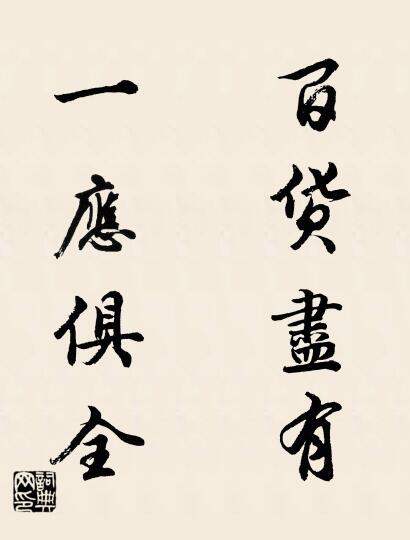 百貨盡有
一應俱全
詞典网印